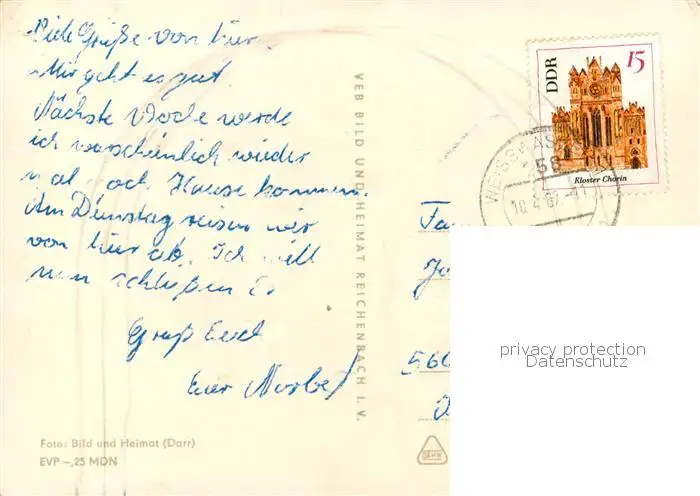 Viele Grüße von hier.
Mir geht es gut.
Nächste Woche werde
ich warscheinlich wieder
mal nach Hause kommen.
Am Dienstag reisen wir
von hier ab. Ich will
nun schlißen Es
Grüß Euch
Euer Norbert
Foto: Bild und Heimat (Darr)
EVP –,25 MDN
VEB BILD UND HEIMAT REICHENBACH I. V.
DDR
15
Kloster Chorin
WEISS
58
10.4.67-11
Fa
560
privacy protection
Datenschutz